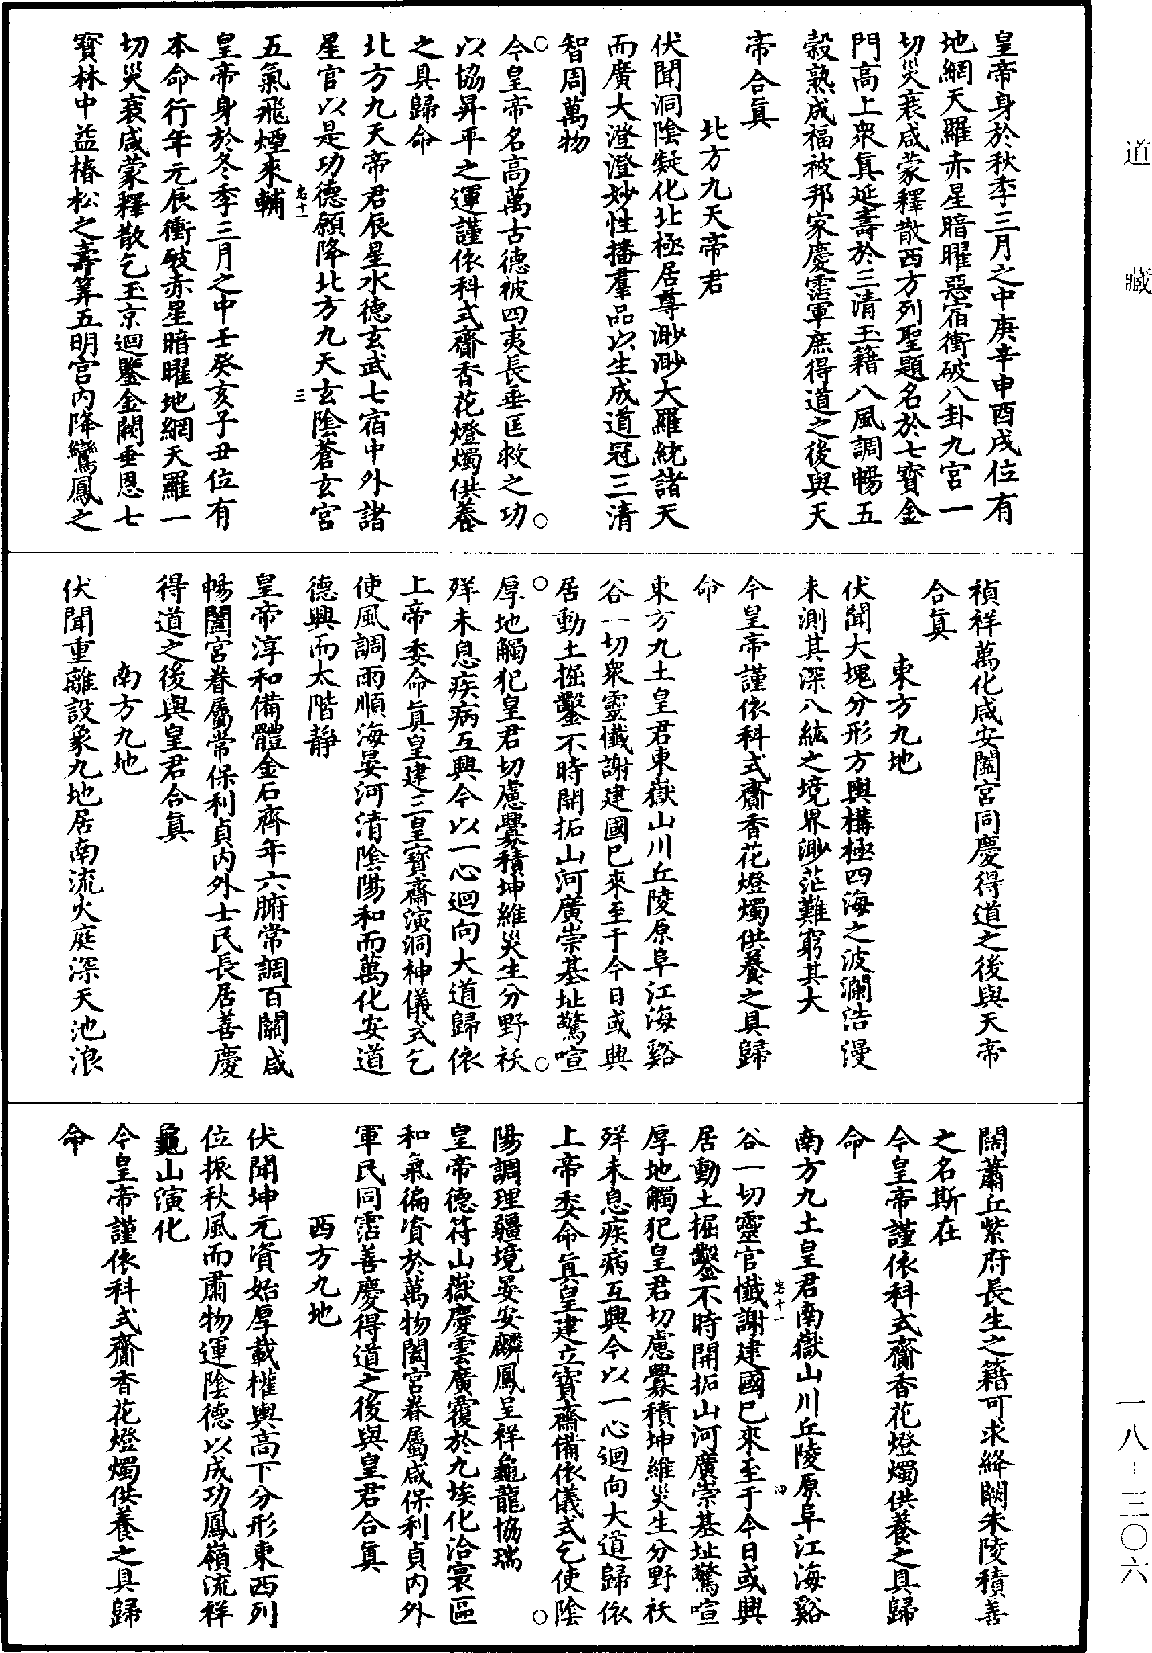 道藏
皇帝身於秋季三月之中庚辛申酉戌位有
地網天羅赤星暗曜惡宿衝破八卦九宮一
切災衰咸蒙釋散西方列聖題名於七寶金
門高上衆真延壽於三清玉籍八風調暢五
穀熟成福被邦家慶霑軍庶得道之後與天
帝合真
北方九天帝君
伏聞洞陰凝化北極居尊渺渺大羅統諸天
而廣大澄澄妙性播羣品以生成道冠三清
智周萬物
今皇帝名高萬古德被四夷長垂匡救之功
以協昇平之運謹依科式齋香花燈燭供養
之具歸命
北方九天帝君辰星水德玄武七宿中外諸
星官以是功德願降北方九天玄陰蒼玄宮
老十一
三
五氣飛煙來輔
皇帝身於冬季三月之中壬癸亥子丑位有
本命行年元辰衝破赤星暗曜地網天羅一
切災衰咸蒙釋散乞玉京迴鑒金闕垂恩七
寶林中益椿松之壽筭五明宮內降鸞鳳之
禎祥萬化咸安闔宮同慶得道之後與天帝
合真
東方九地
伏聞大塊分形方輿構極四海之波瀾浩漫
未測其深八紘之境界渺茫難窮其大
今皇帝謹依科式齋香花燈燭供養之具歸
命
東方九土皇君東嶽山川丘陵原阜江海谿
谷一切衆靈懺謝建國已來至于今日或興
居動土掘鑿不時開拓山河廣崇基址驚喧
厚地觸犯皇君切慮釁積坤維災生分野祅
殃未息疾病互興今以一心迴向大道歸依
上帝委命真皇建三皇寶齋演洞神儀式乞
使風調雨順海晏河清陰陽和而萬化安道
德興而太階靜
皇帝淳和備體金石齊年六腑常調百關咸
暢闔宮眷屬常保利貞內外士民長居善慶
得道之後與皇君合真
南方九地
伏聞重離設象九地居南流火庭深天池浪
闊蕭丘紫府長生之籍可求絳闕朱陵積善
之名斯在
今皇帝謹依科式齋香花燈燭供養之具歸
命
南方九土皇君南嶽山川丘陵原阜江海谿
谷一切靈官懺謝建國已來至于今日或興
老十一
四
居動土掘鑿不時開拓山河廣崇基址驚喧
厚地觸犯皇君切慮釁積坤維災生分野祅
殃未息疾病互興今以一心迴向大道歸依
上帝委命真皇建立寶齋備依儀式乞使陰
陽調理疆境晏安麟鳳呈祥龜龍協瑞
皇帝德符山嶽慶雲廣覆於九埃化洽寰區
和氣徧資於萬物闔宮眷屬咸保利貞內外
軍民同霑善慶得道之後與皇君合真
西方九地
伏聞坤元資始厚載權輿高下分形東西列
位振秋風而肅物運陰德以成功鳳嶺流祥
龜山演化
今皇帝謹依科式齋香花燈燭供養之具歸
命
一八-三〇六